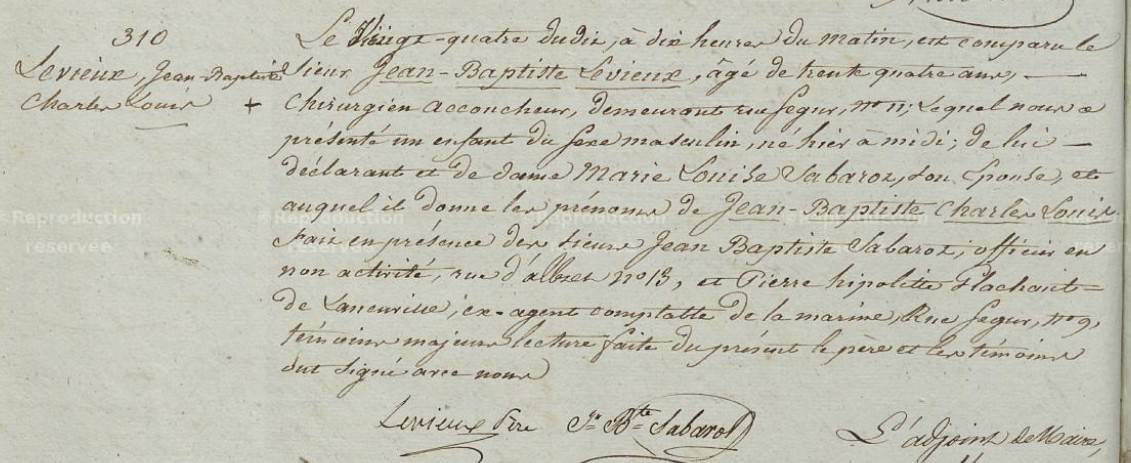 310
Levieux, Jean-Baptiste
Charles Louis +
Le Vingt-quatre dudit, à dix heures du matin, est comparu le
sieur Jean-Baptiste Levieux, âgé de trente quatre ans, —
Chirurgien accoucheur, demeurant rue Segur, n° 11; Lequel nous a
présenté un enfant du sexe masculin, né hier à midi; de lui —
déclarant et de dame Marie Louise Sabarot, son Epouse, et
auquel il donne les prénoms de Jean-Baptiste Charles Louis.
Fait en présence des sieurs Jean Baptiste Sabarot, officier en
non activité, rue d'albret n° 13, et Pierre hipolitte Flachait=
de Laneuville, ex-agent comptable de la marine, Rue Segur, n° 9,
témoins majeurs lecture faite du présent le père et les témoins
ont signé avec nous
Levieux Père Jn Bte Sabarot
L'adjoint de Maire,
© Reproduction réservée
© Reproduction réservée
© Reproduction
© Reproduction